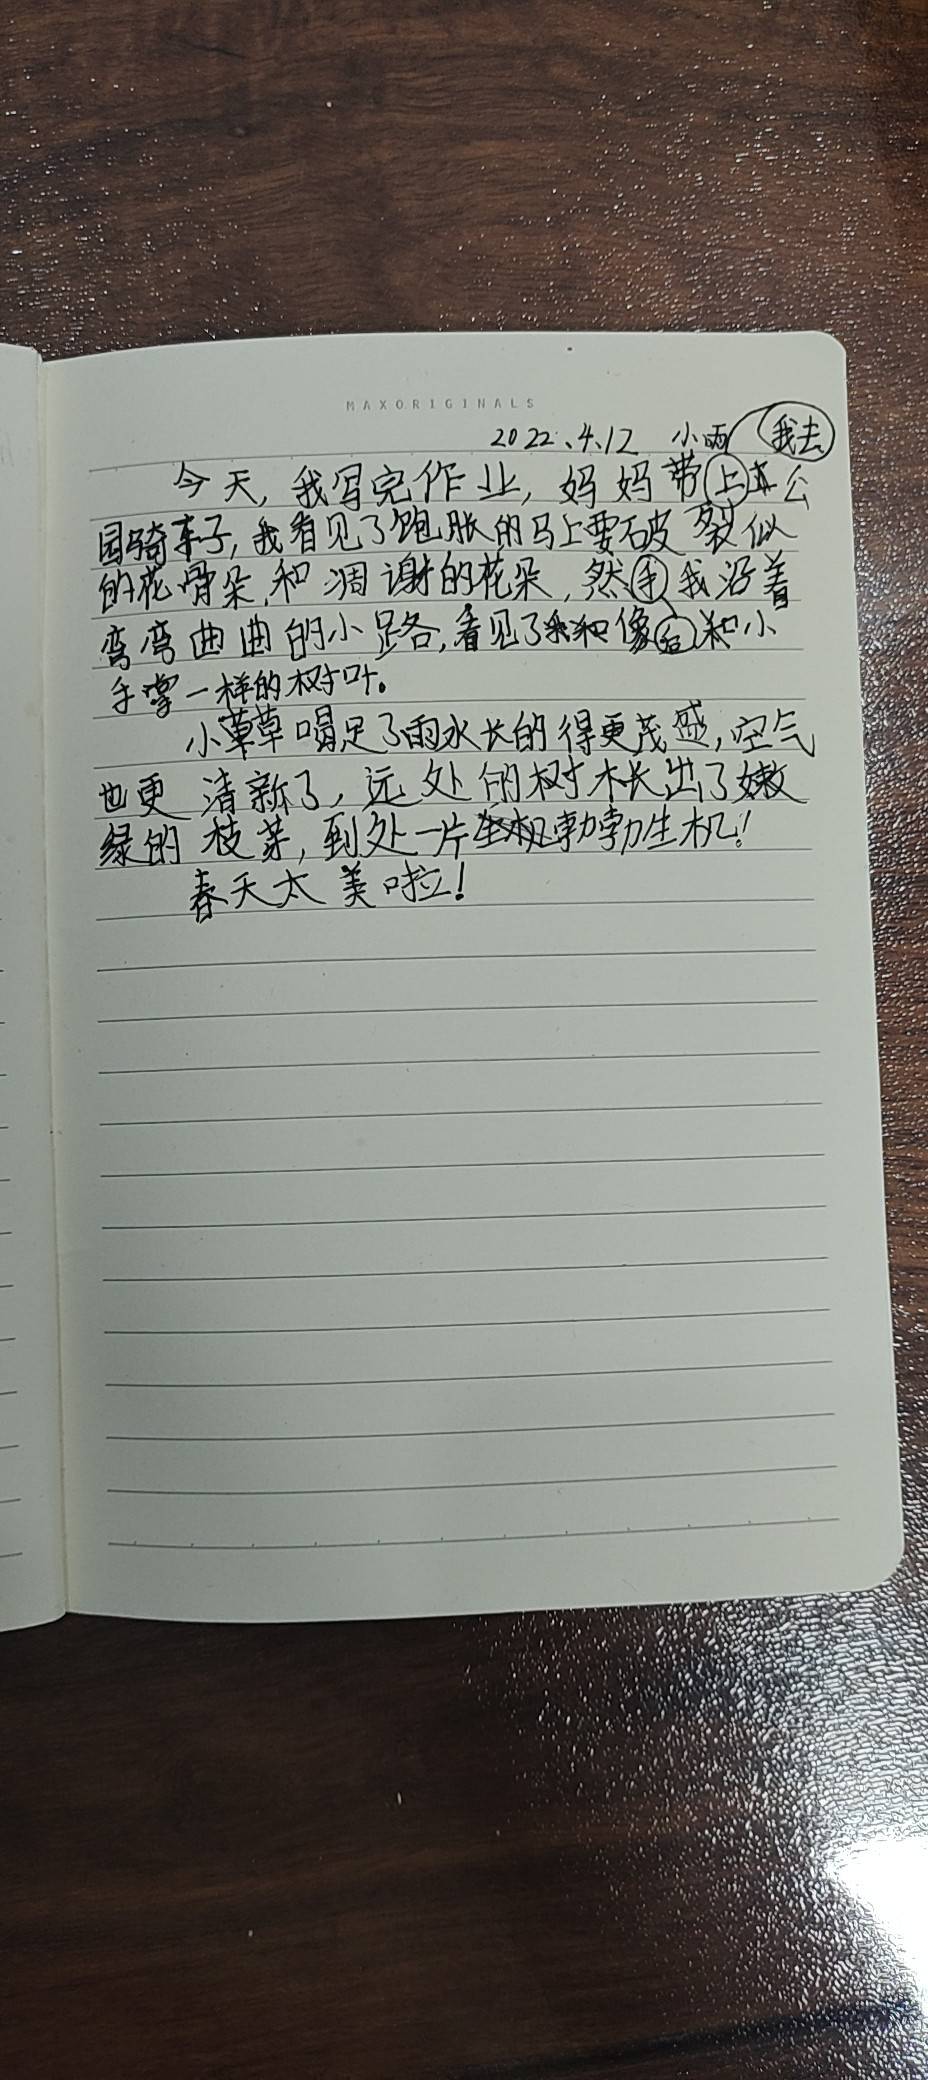 MAXORIGINALS
2022.4.12 小雨 我去
今天,我写完作业,妈妈带上去公
园骑车子,我看见了饱胀的马上要破裂似
的花骨朵,和凋谢的花朵,然 我沿着
弯弯曲曲的小路,看见了 像 和小
手掌一样的树叶。
小草喝足了雨水长的得更茂盛,空气
也更清新了,远处的树木长出了嫩
绿的枝芽,到处一片 勃勃生机!
春天太美啦!